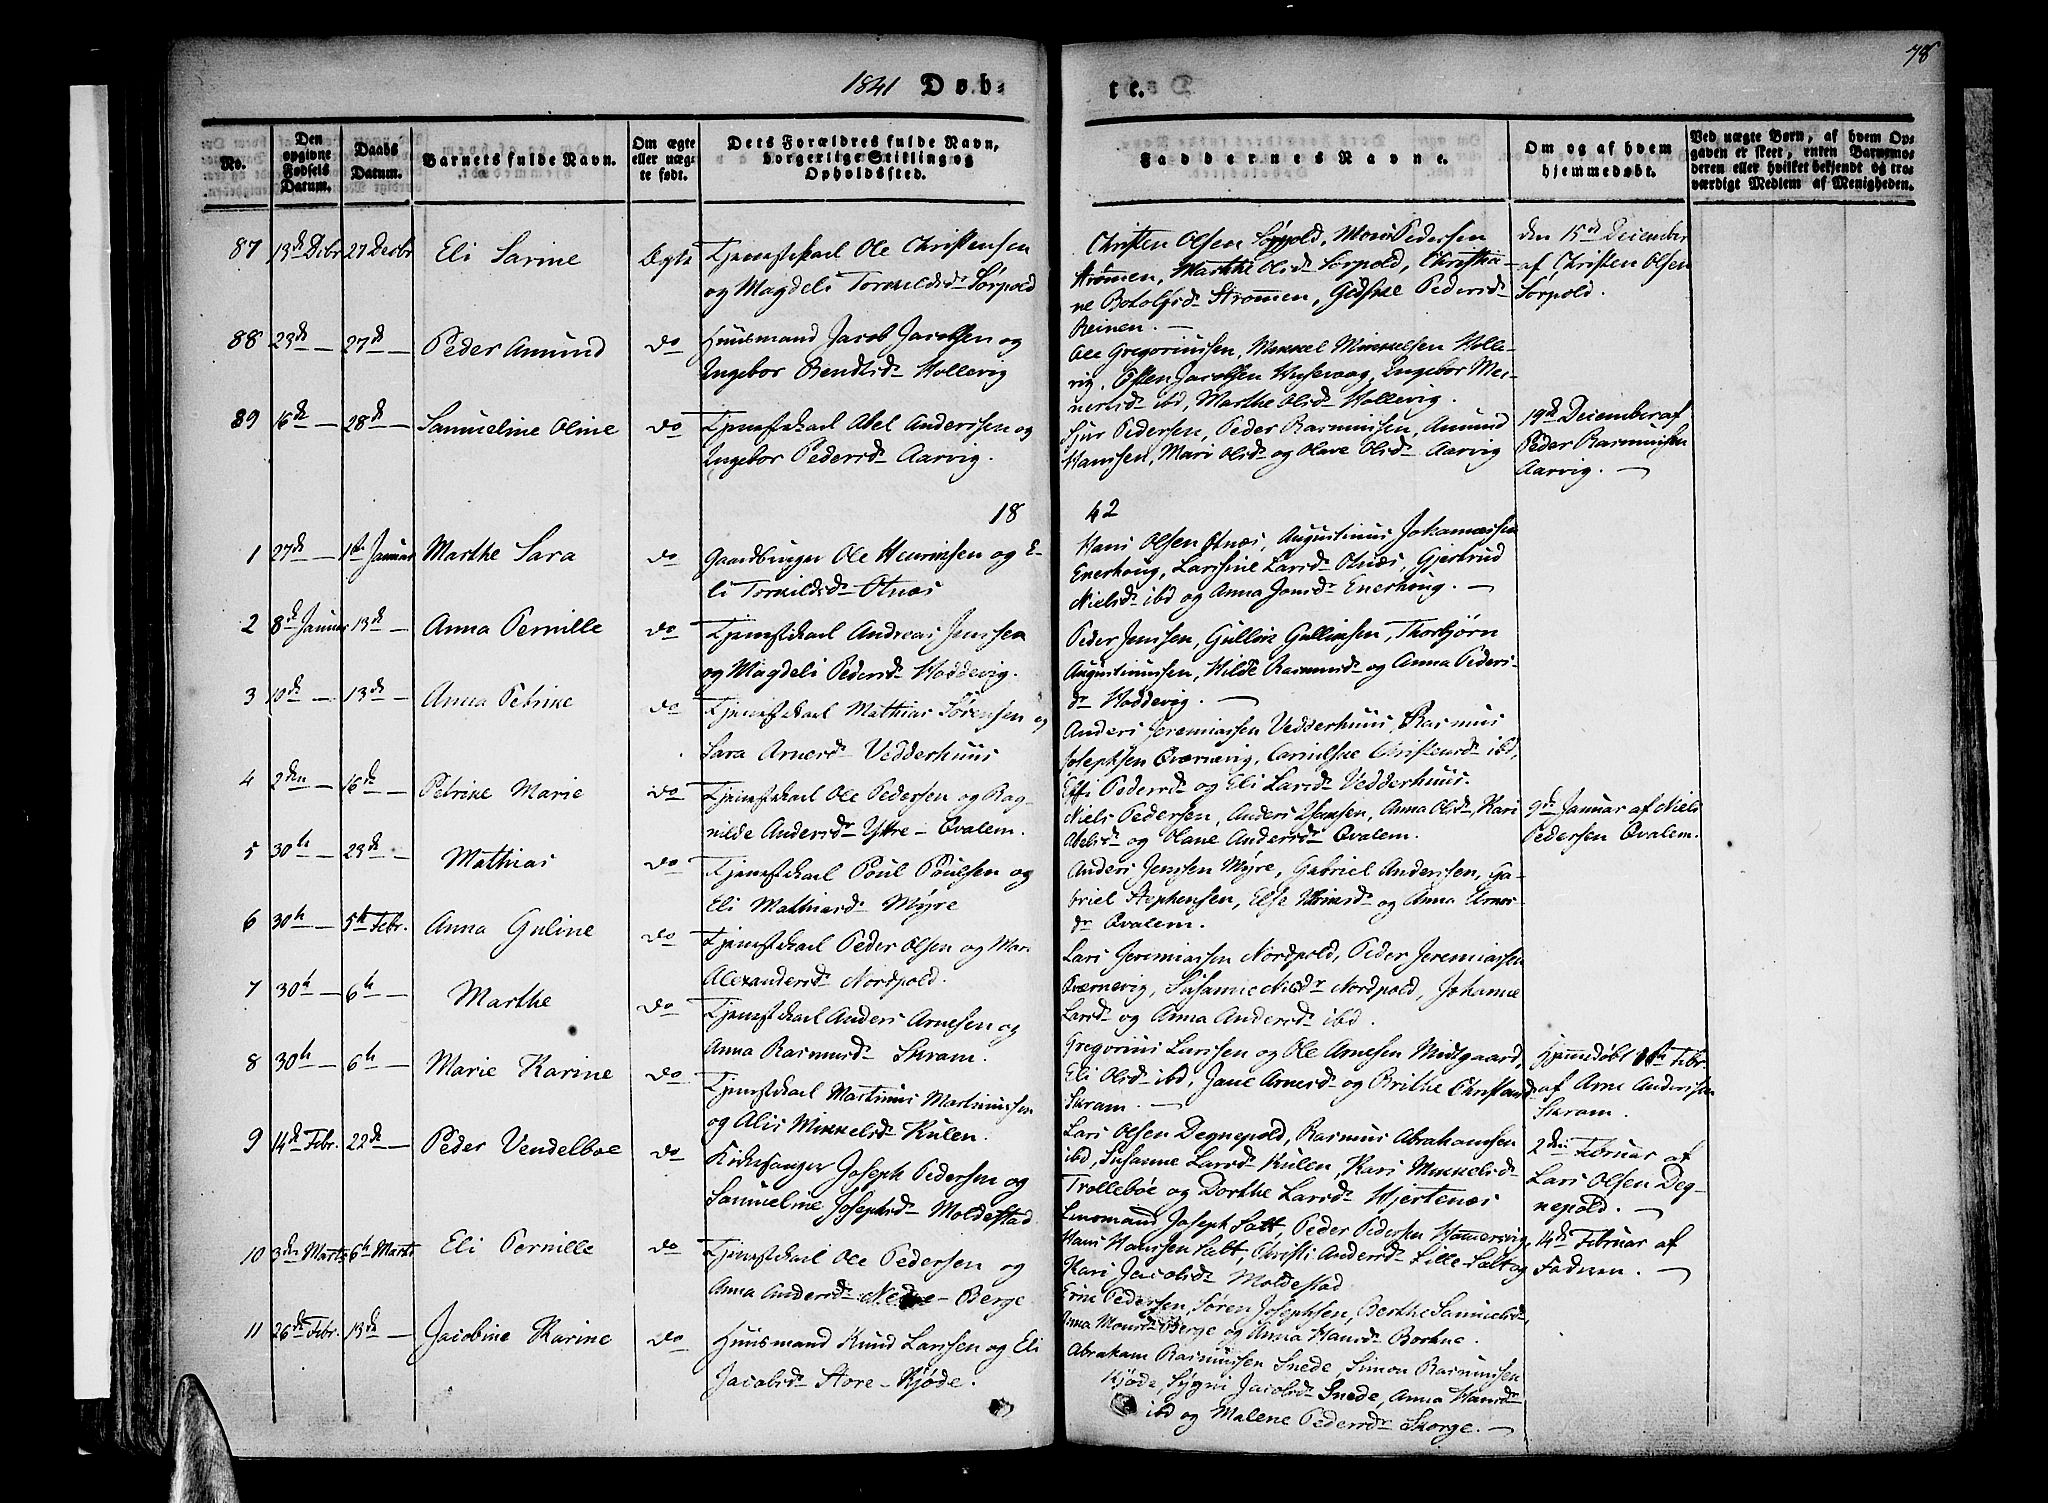 78
1841 Døb-
te.
No.
Den opgivne Fødsels Datum.
Daabs Datum.
Barnets fulde Navn.
Om ægte eller uægte født.
Dets Forældres fulde Navn, borgerlige Stilling og Opholdssted.
Faddernes Navne.
Om og af hvem hjemmedøbt.
Ved uægte Børn, af hvem Opgaven er skeet, enten Barnemoderen eller hvilket bekjendt og troværdigt Medlem af Menigheden.
87 13de Decbr 27 Decbr Eli Sarine Ægte Tjenestekarl Ole Christensen
og Magdeli Torkildsd. Sørpold
Christen Olsen Sørpold, Mons Pedersen
Strømen, Marthe Olsd. Sørpold, Christia-
ne Botolfsd. Strømen, Gidske Pedersd.
Reinen. —
den 15de December
af Christen Olsen
Sørpold.
88 23de — 27de — Peder Amund do Huusmand Jacob Jacobsen og
Ingebor Bendtsd. Hollevig
Ole Gregoriussen, Mikkel Mikkelsen Holle-
vig, Østen Jacobsen Husevaag, Ingebor Mei-
nersd. ibd, Marthe Olsd. Hollevig.
89 16de — 28de — Samueline Oline do Tjenestekarl Abel Anderssen og
Ingebor Pedersd. Aarvig.
Sjur Pedersen, Peder Rasmussen, Amund
Hanssen, Mari Olsd. og Olave Olsd. Aarvig
19de December af
Peder Rasmussen
Aarvig. —
18 42
1 27de — 1ste Januar Marthe Sara do Gaardbruger Ole Henriksen og E-
li Torkildsd. Otnæs
Hans Olsen Otnæs, Augustinus Johannessen
Enerhoug, Larsine Larsd. Otnæs, Gjertrud
Nielsd. ibd og Anna Jonsd. Enerhoug. —
2 8de Januar 13de — Anna Pernille do Tjenestekarl Andreas Jenssen
og Magdeli Pedersd. Hoddevig.
Peder Jenssen, Gullik Gulliksen, Thorbjørn
Augustinussen, Hilde Rasmusd. og Anna Peders-
d. Hoddevig. —
3 10de — 13de — Anna Petrike do Tjenestekarl Mathias Sørensen og
Sara Arnesd. Vedderhuus
Anders Jeremiassen Vedderhuus, Rasmus
Josephsen Qværnevig, Christensd. ibd,
Pedersd. og Eli Larsd. Vedderhuus.
4 2den — 16de Petrike Marie do Tjenestekarl Ole Pedersen og Rag-
nilde Andersd. Yttre-Qvalem.
Niels Pedersen, Anders Hansen, Anna Olsd., Kari
Abelsd. og Olane Andersd. Qvalem.
9de Januar af Niels
Pedersen Qvalem.
5 30te — 23de — Mathias do Tjenestekarl Poul Poulsen og
Eli Mathiasd. Myre
Anders Jenssen Myre, Gabriel Anderssen, Ga-
briel Stephensen, Else og Anna
d. Qvalem.
6 30te — 5te Febr. Anna Guline do Tjenestekarl Peder Olsen og Mari
Alexandersd. Nordpold.
Lars Jeremiassen Nordpold, Peder Jeremiassen
Qværnevig, Susanne Nielsd. Nordpold, Johanne
Larsd. og Anna Andersd. ibd.
7 30te — 6te — Marthe do Tjenestekarl Anders Arnesen og
Anna Rasmusd. Skram.
Gregorius Larssen og Ole Arnesen Midtgaard,
Eli Olsd. ibd, Jane Arnesd. og Brithe Christensd.
Skram. —
Hjemmedøbt Febr.
af Arne Anderssen
Skram.
8 30te — 6te — Marie Karine do Tjenestekarl Martinus Martinussen
og Alis Mikkelsd. Kulen.
Lars Olsen Degnepold, Rasmus Abrahamsen
ibd, Susanne Larsd. Kulen, Kari Mikkelsd.
Trollebøe og Dorthe Larsd. Hjertenæs
2den Februar af
Lars Olsen Deg-
nepold. —
9 14de Febr. 22de — Peder Vendelboe do Kirkesanger Joseph Pedersen og
Samueline Josephsd. Moldestad
Lensmand Joseph Salt, Peder Pedersen Hamersvig,
Hans Hanssen Salt, Christi Andersd. Lille-Salt og
Kari Jacobsd. Moldestad
14de Februar af
Faderen. —
10 3den Marts 6te Marts Eli Pernille do Tjenestekarl Ole Pedersen og
Anna Andersd. Nedre-Berge
Erik Pedersen, Søren Josephsen, Berthe Samuelsd.,
Anna Monsd. Berge og Anna Hansd. Borkne.
11 26de Febr. 13de — Jacobine Karine do Huusmand Knud Larssen og Eli
Jacobsd. Store-Kjøde.
Abraham Rasmussen Snede, Simon Rasmussen
Kjøde, Sygni Jacobsd. Snede, Anna Hansd.
ibd og Malene Pedersd. Skorge. —